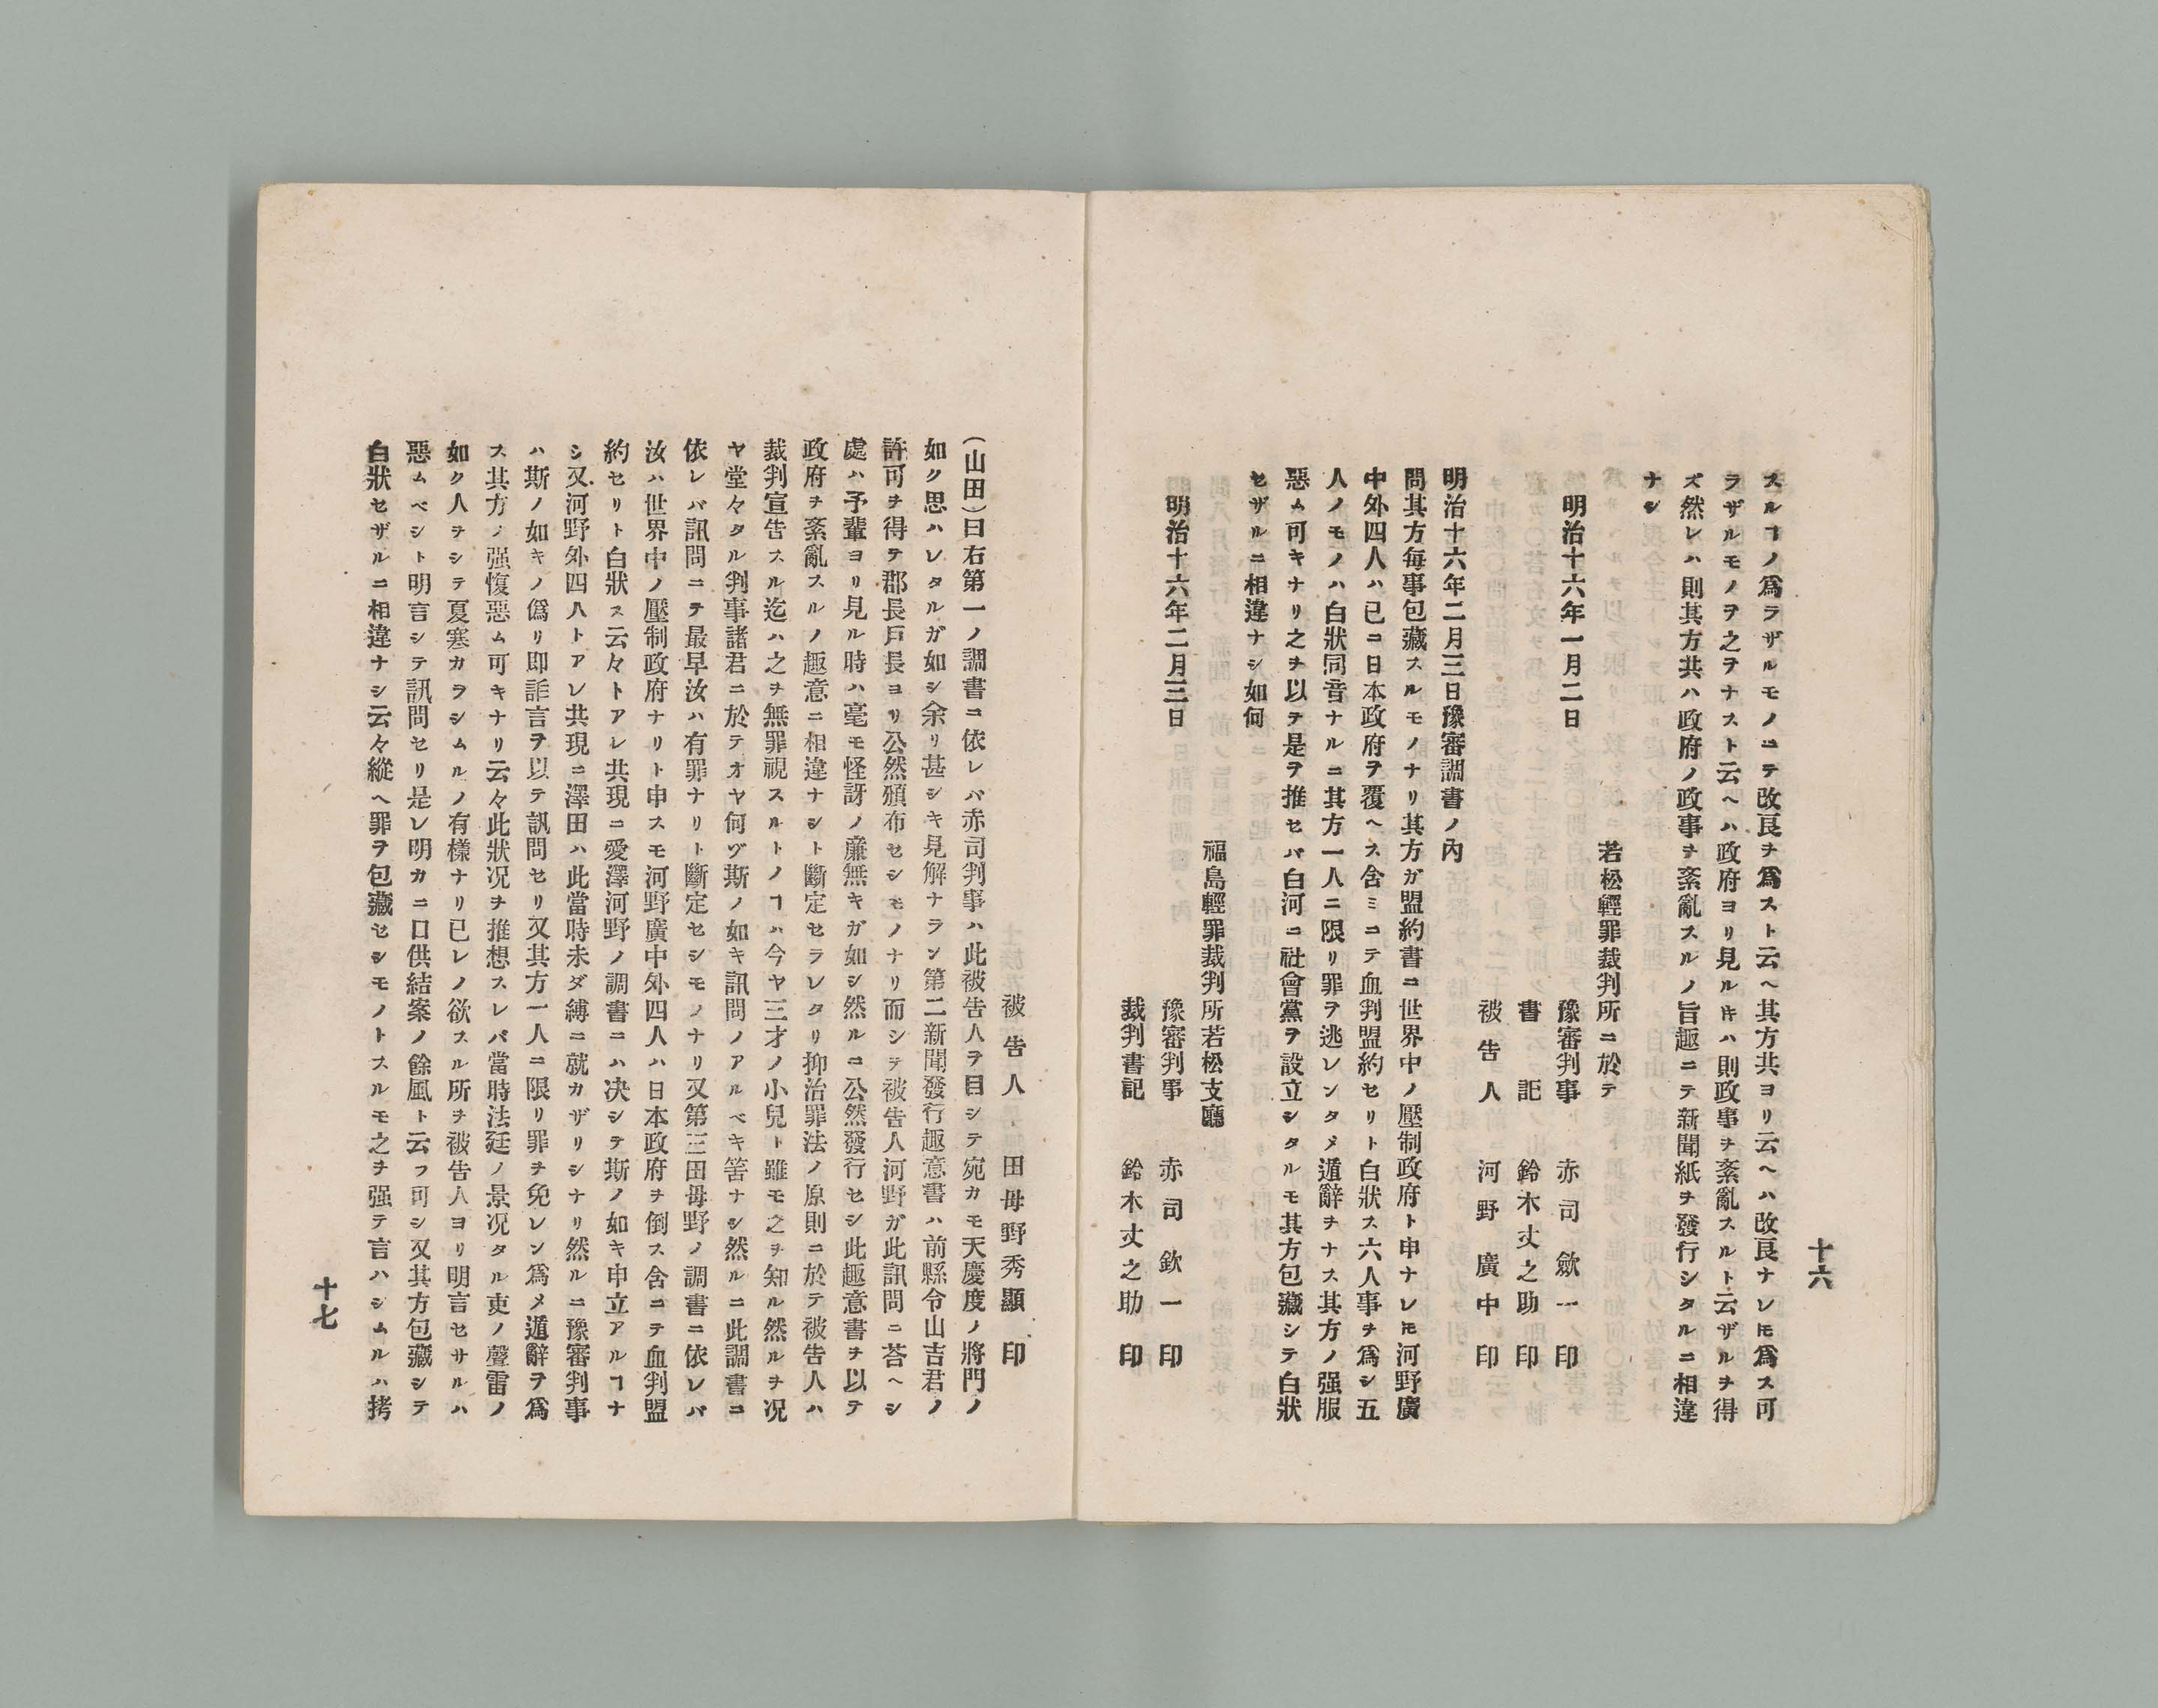 十六
スルヿノ爲ラザルモノニテ改良ヲ爲スト云ヘ其方共ヨリ云ヘハ改良ナレ𪜈爲ス可
ラザルモノヲ之ヲナスト云ヘハ政府ヨリ見ル𪜈ハ則政事ヲ紊亂スルト云ザルヲ得
ズ然レハ則其方共ハ政府ノ政事ヲ紊亂スルノ旨趣ニテ新聞紙ヲ發行シタルニ相違
ナシ
若松輕罪裁判所ニ於テ
明治十六年一月二日
豫審判事 赤司歛一 印
書記 鈴木丈之助 印
被告人 河野廣中 印
明治十六年二月三日豫審調書ノ内
問其方毎事包藏スルモノナリ其方ガ盟約書ニ世界中ノ壓制政府ト申ナレ𪜈河野廣
中外四人ハ已ニ日本政府ヲ覆ヘス含ミニテ血判盟約セリト白狀ス六人事ヲ爲シ五
人ノモノハ白狀同音ナルニ其方一人ニ限リ罪ヲ逃レンタメ遁辭ヲナス其方ノ强服
惡ム可キナリ之ヲ以テ是ヲ推セバ白河ニ社會黨ヲ設立シタルモ其方包藏シテ白狀
セザルニ相違ナシ如何
福島輕罪裁判所若松支廳
明治十六年二月三日
豫審判事 赤司欽一 印
裁判書記 鈴木丈之助 印
被告人 田母野秀顯 印
(山田)曰右第一ノ調書ニ依レバ赤司判事ハ此被告人ヲ目シテ宛カモ天慶度ノ將門ノ
如ク思ハレタルガ如シ余リ甚シキ見解ナラン第二新聞發行趣意書ハ前縣令山吉君ノ
許可ヲ得テ郡長戸長ヨリ公然頒布セシモノナリ而シテ被告人河野ガ此訊問ニ荅ヘシ
處ハ予輩ヨリ見ル時ハ毫モ怪訝ノ廉無キガ如シ然ルニ公然發行セシ此趣意書ヲ以テ
政府ヲ紊亂スルノ趣意ニ相違ナシト斷定セラレタリ抑治罪法ノ原則ニ於テ被告人ハ
裁判宣告スル迄ハ之ヲ無罪視スルトノヿハ今ヤ三才ノ小兒ト雖モ之ヲ知ル然ルヲ况
ヤ堂々タル判事諸君ニ於テオヤ何ヅ斯ノ如キ訊問ノアルベキ筈ナシ然ルニ此調書ニ
依レバ訊問ニテ最早汝ハ有罪ナリト斷定セシモノナリ又第三田母野ノ調書ニ依レバ
汝ハ世界中ノ壓制政府ナリト申スモ河野廣中外四人ハ日本政府ヲ倒ス含ニテ血判盟
約セリト白狀ス云々トアレ共現ニ愛澤河野ノ調書ニハ决シテ斯ノ如キ申立アルヿナ
シ又河野外四人トアレ共現ニ澤田ハ此當時未ダ縛ニ就カザリシナリ然ルニ豫審判事
ハ斯ノ如キノ僞リ即詐言ヲ以テ訊問セリ又其方一人ニ限リ罪ヲ免レン爲メ遁辭ヲ爲
ス其方ノ强愎惡ム可キナリ云々此狀况ヲ推想スレバ當時法廷ノ景况タル吏ノ聲雷ノ
如ク人ヲシテ夏寒カラシムルノ有樣ナリ已レノ欲スル所ヲ被告人ヨリ明言セサルハ
惡ムベシト明言シテ訊問セリ是レ明カニ口供結案ノ餘風ト云フ可シ又其方包藏シテ
白狀セザルニ相違ナシ云々縱ヘ罪ヲ包藏セシモノトスルモ之ヲ强テ言ハシムルハ拷
十七